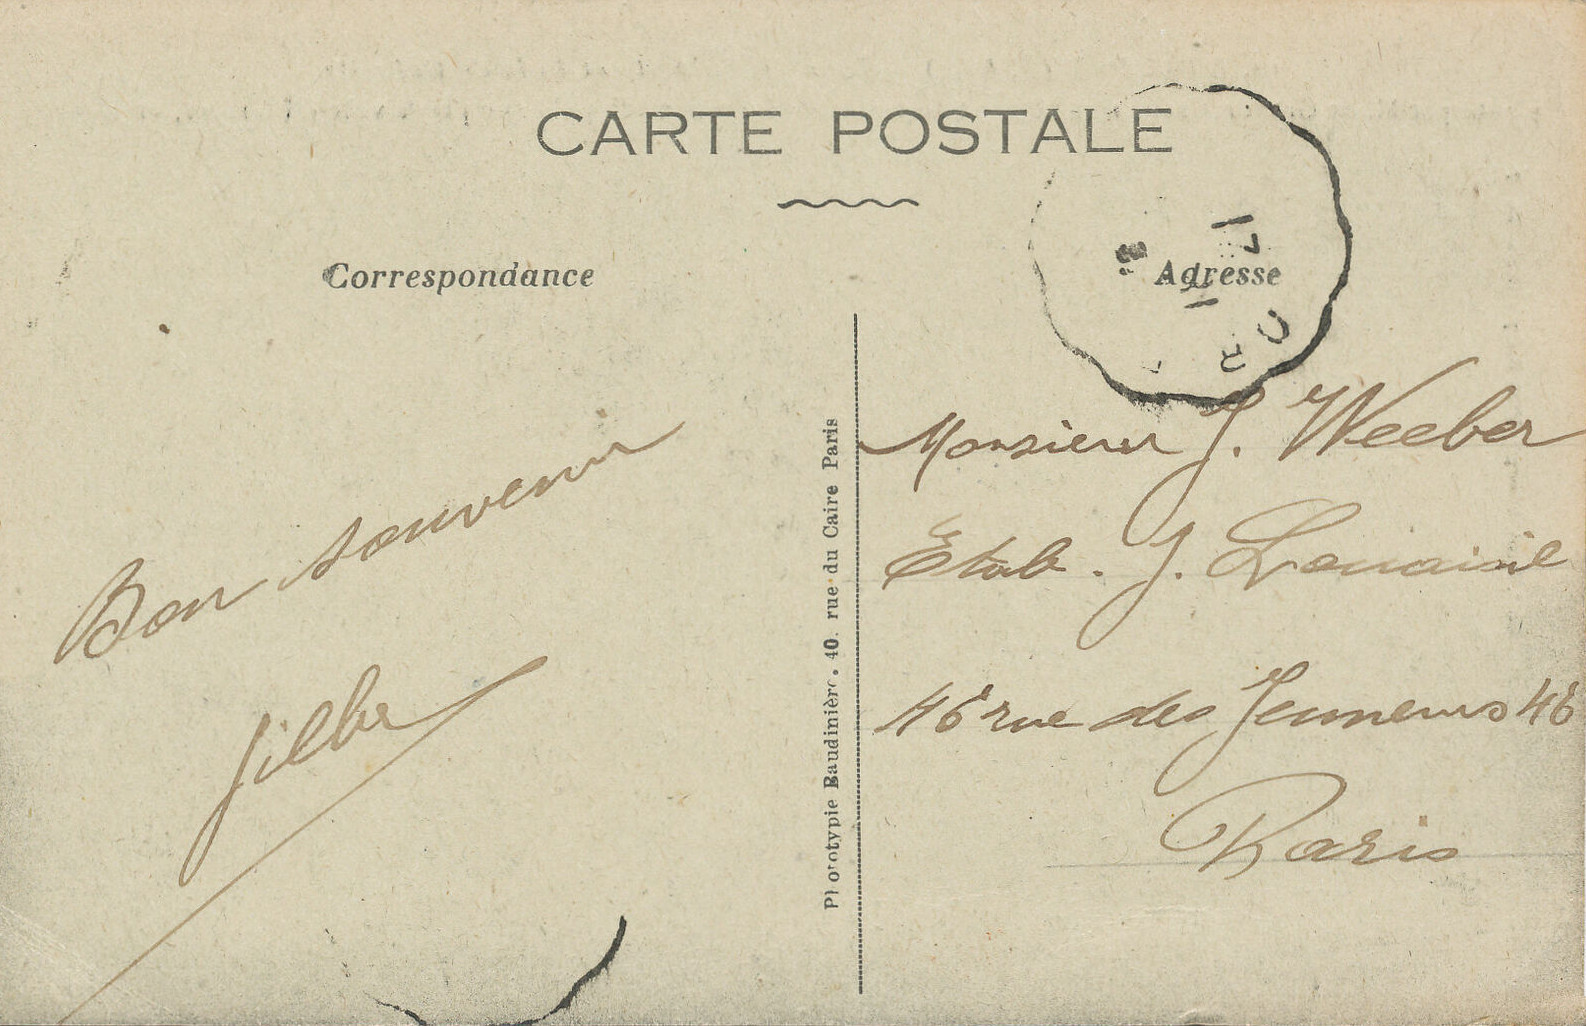 CARTE POSTALE
Correspondance
Adresse
Bon souvenir
Phototypie Baudinière, 40, rue du Caire Paris
Monsieur J. Weeber
Etab. J.
46 rue des Jeuneurs 46
Paris
17